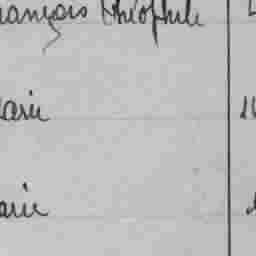 rançois Théophile
arie
arie